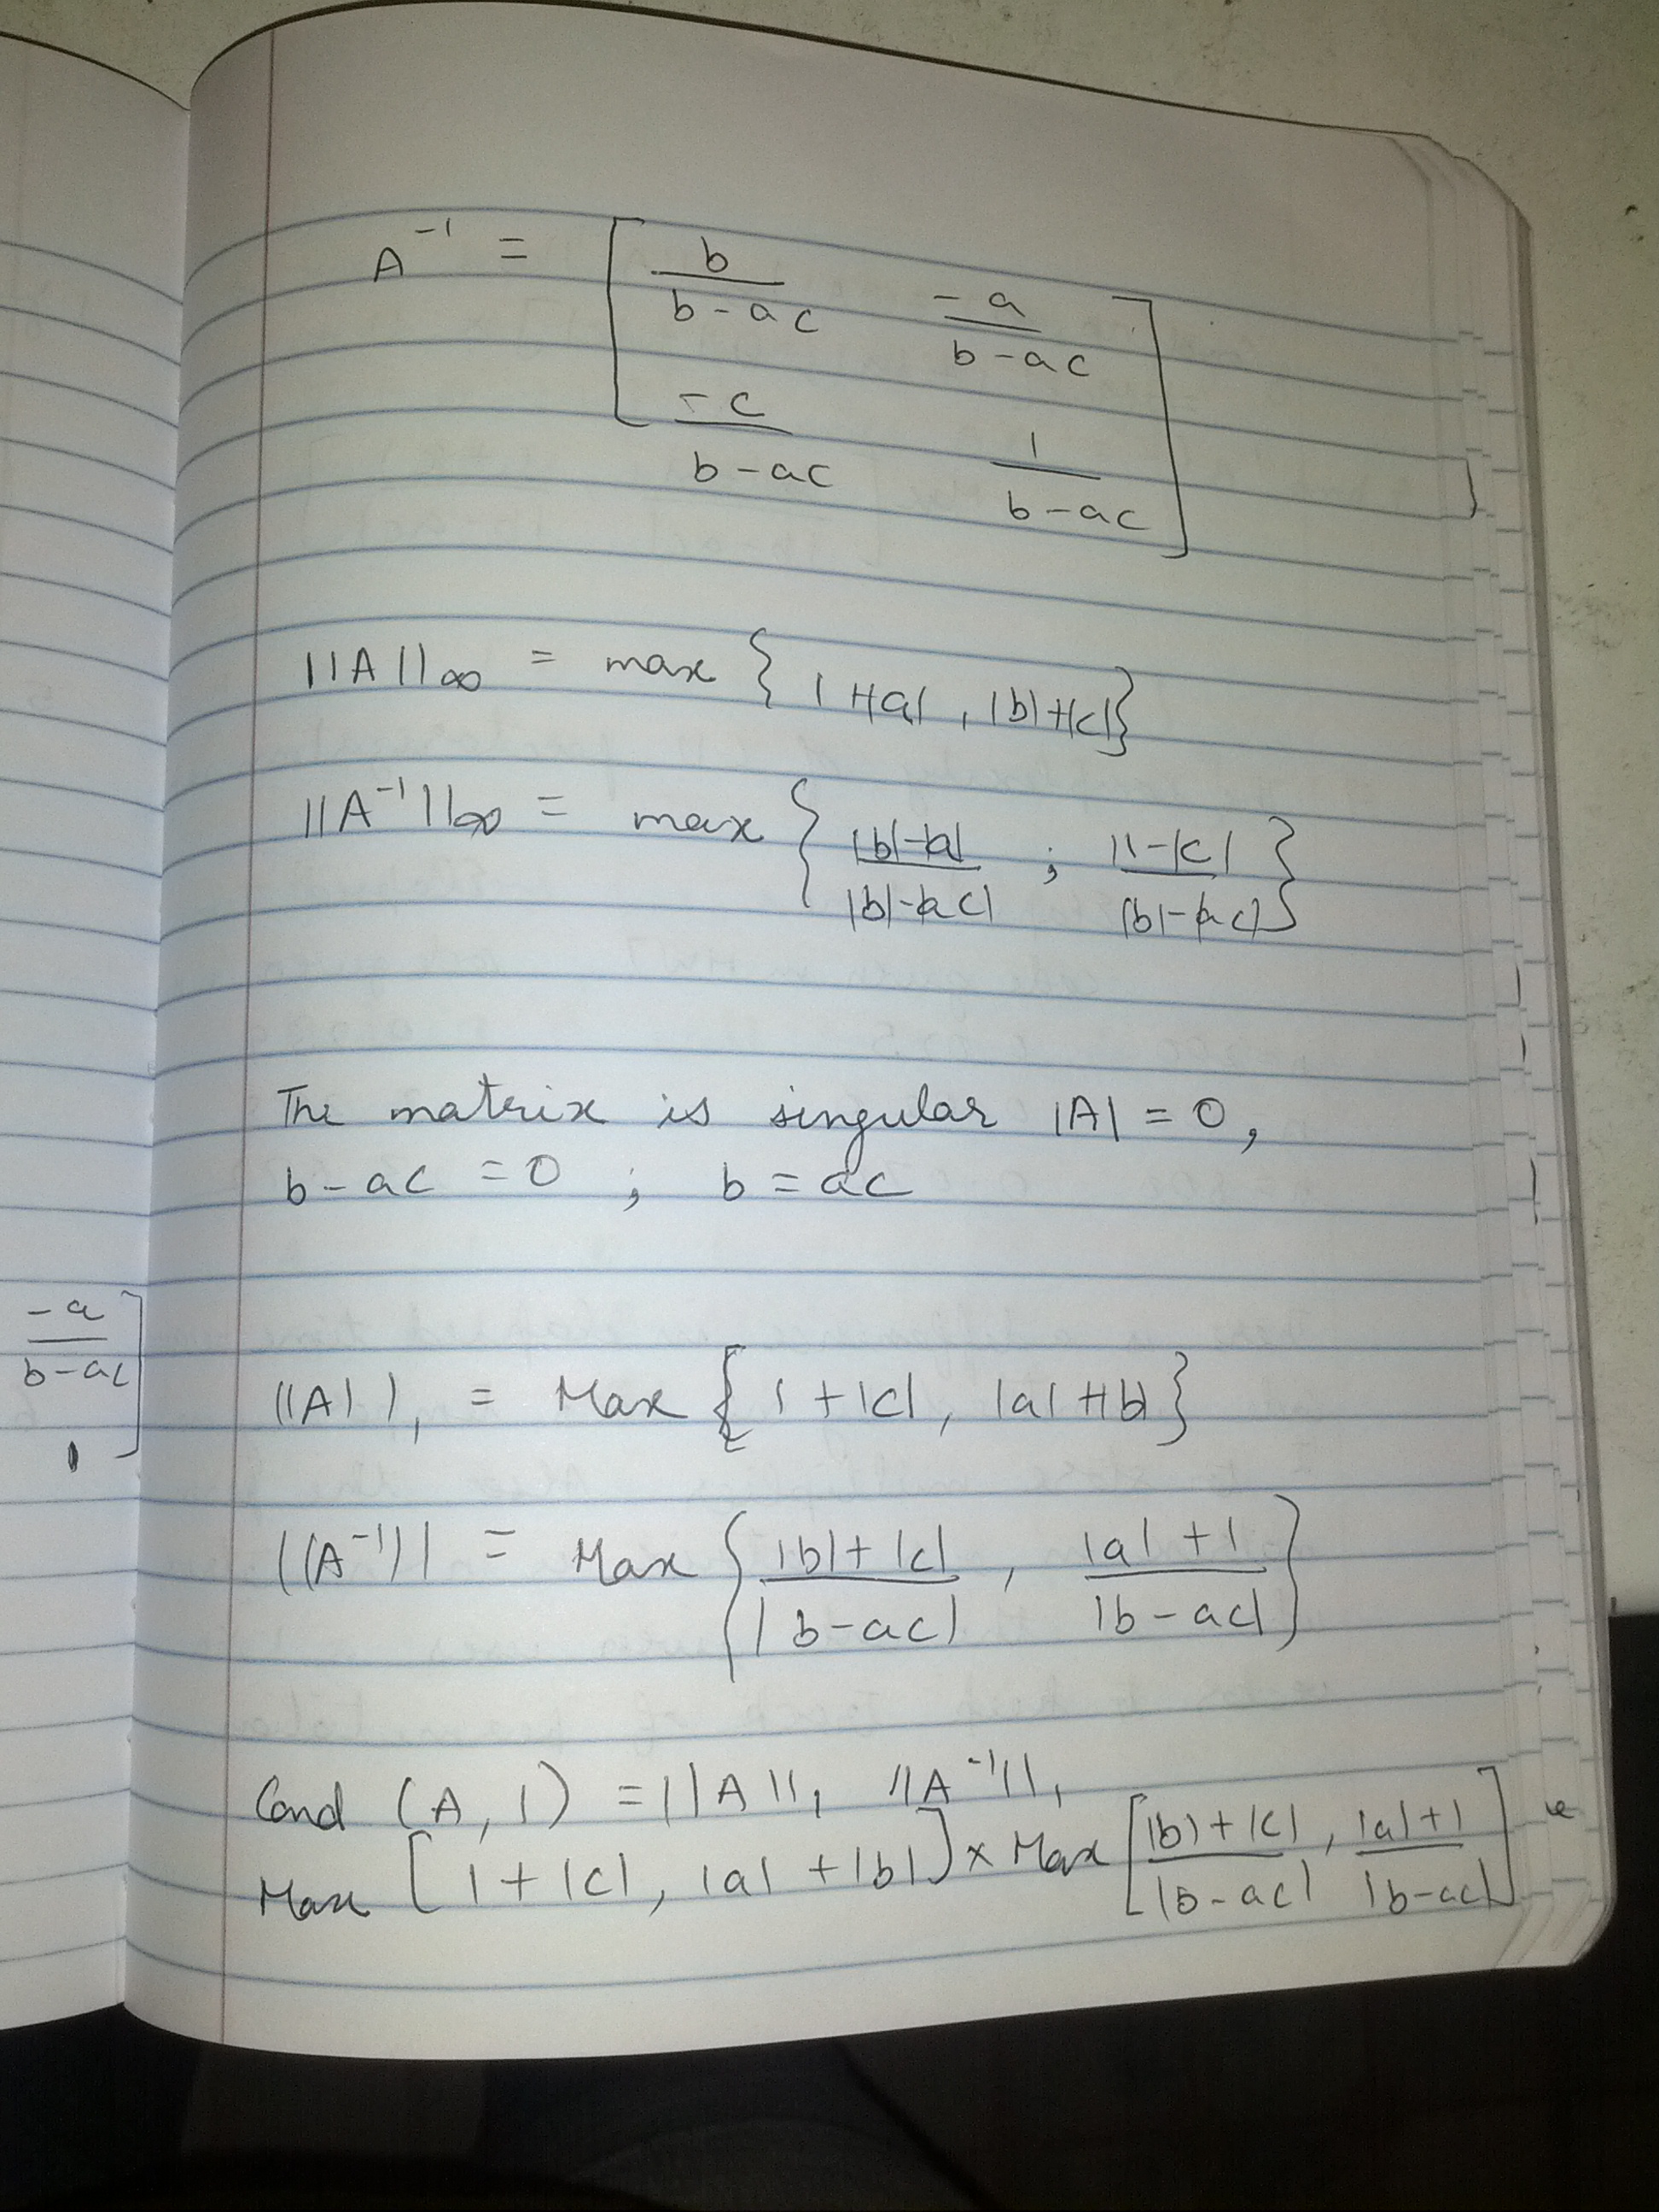 A⁻¹ = [ b/(b-ac)   -a/(b-ac)
-c/(b-ac)   1/(b-ac) ]
||A||∞ = max { 1+|a| , |b|+|c| }
||A⁻¹||∞ = max { |b|-|a| / |b|-|ac| ; |1-|c| / |b|-|ac| }
The matrix is singular |A| = 0,
b-ac = 0 ; b = ac
-a/(b-ac) ]
1
||A||₁ = Max { 1+|c|, |a|+|b| }
||A⁻¹|| = Max { |b|+|c| / |b-ac| , |a|+1 / |b-ac| }
Cond (A, 1) = ||A||₁ ||A⁻¹||₁
Max [ 1+|c|, |a|+|b| ] × Max [ |b|+|c| / |b-ac| , |a|+1 / |b-ac| ]